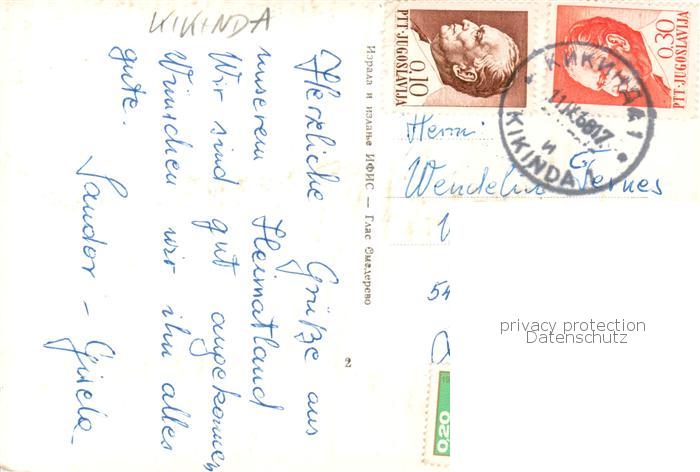 KIKINDA
Herzliche Grüße aus
unserem Heimatland
Wir sind gut angekommen
Wünschen wir ihn alles
gute.
Sandor - Gisela-
Израда и издање ИФИС — Глас Смедерево
2
0.10
PTT-JUGOSLAVIJA
0.30
PTT-JUGOSLAVIJA
КИКИНДА 1
и
KIKINDA 1
Herrn
Wendelin Fernes
54
0.20
privacy protection
Datenschutz